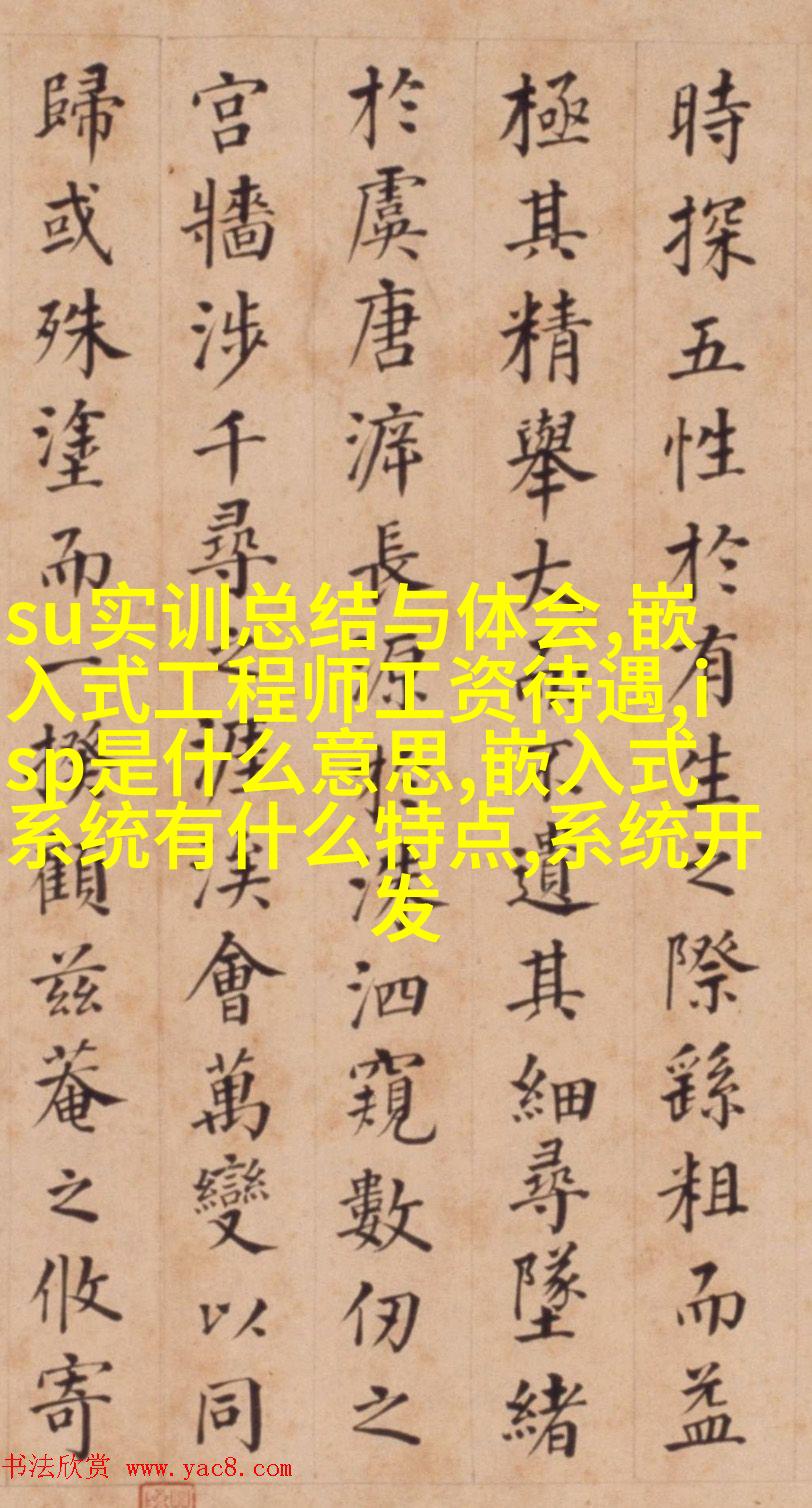 時探五性於有生之際繇粗而益
極其精舉大而不遺其細尋墜緒
於虞唐長源於洙泗窺數仞之
宮牆涉千尋之涯涘會萬變以同
歸或殊塗而一揆顧茲菴之攸寄
su实训总结与体会,嵌
入式工程师工资待遇,i
sp是什么意思,嵌入式
系统有什么特点,系统开
发
书法欣赏 www.yac8.com